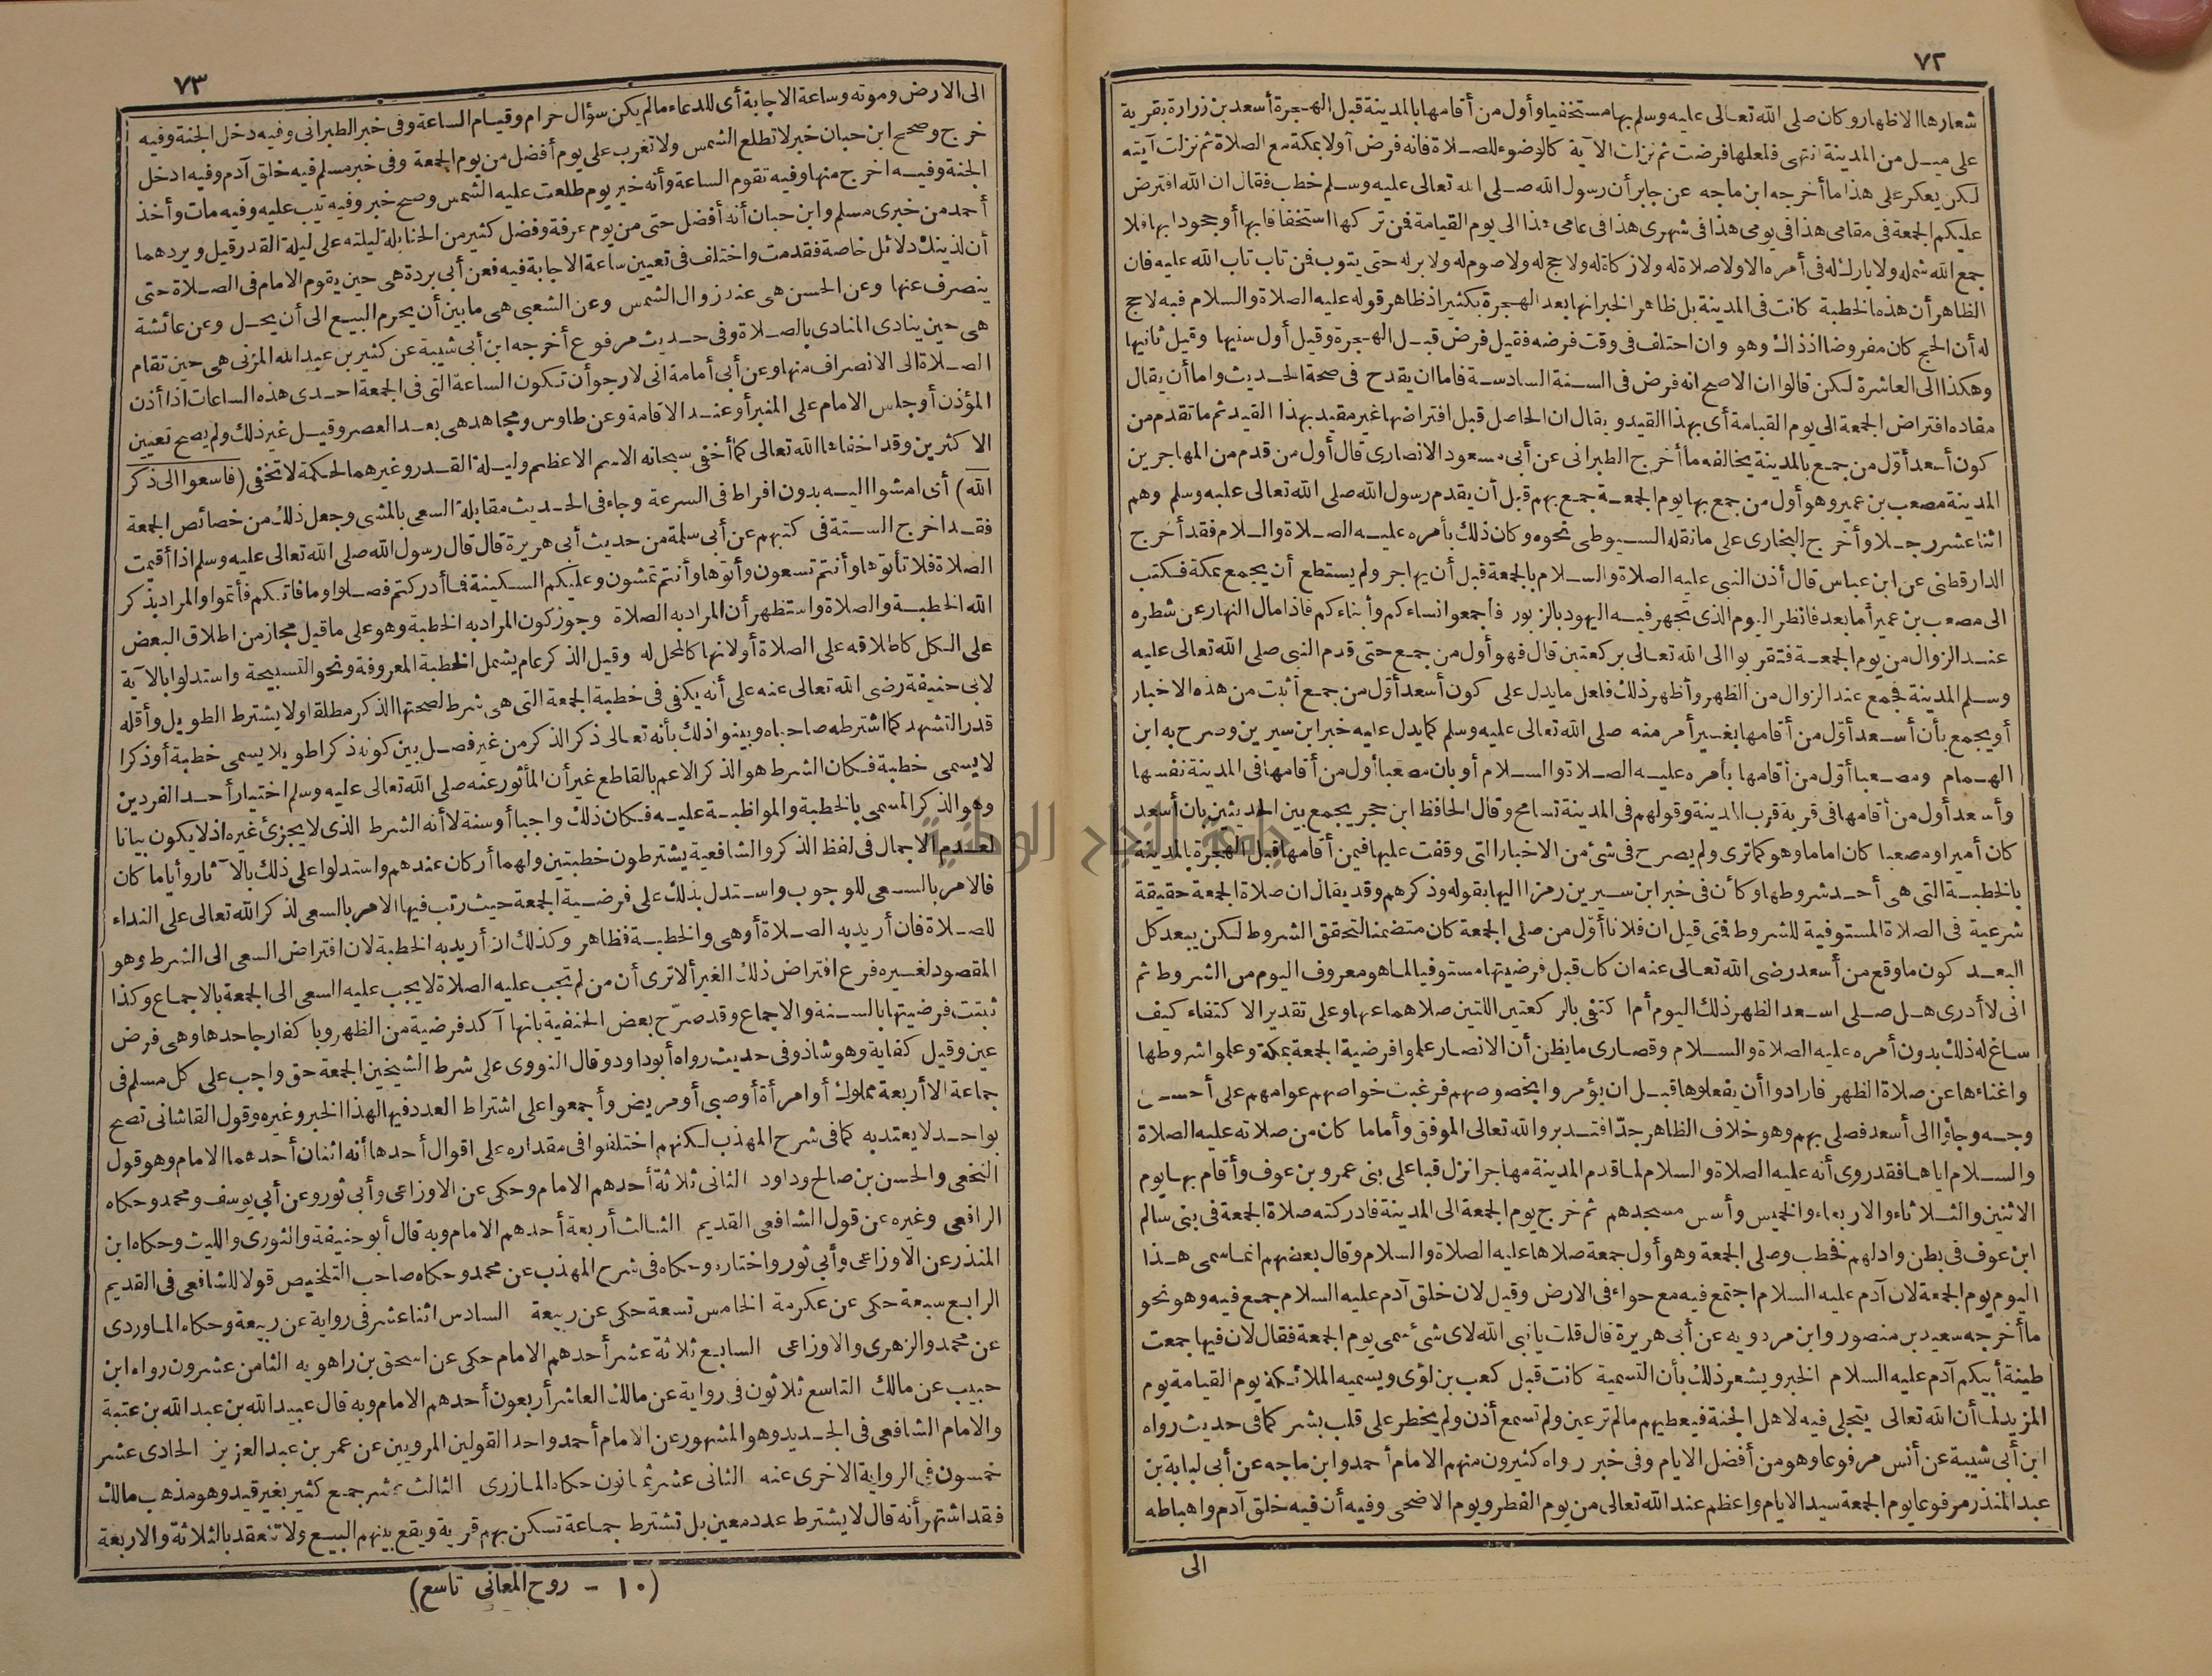 ٧٢
شعارها الاظهار وكان صلى الله تعالى عليه وسلم بها مستخفيا وأول من أقامها بالمدينة قبل الهجرة أسعد بن زرارة بقرية
على ميل من المدينة انتهى فلعلها فرضت ثم نزلت الآية كالوضوء للصلاة فانه فرض أولا بمكة مع الصلاة ثم نزلت آيته
لكن يعكر على هذا ما أخرجه ابن ماجه عن جابر أن رسول الله صلى الله تعالى عليه وسلم خطب فقال ان الله افترض
عليكم الجمعة فى مقامى هذا فى يومى هذا فى شهرى هذا فى عامى هذا الى يوم القيامة فمن تركها استخفافا بها أو جحودا بها فلا
جمع الله شمله ولا بارك له فى أمره الا ولا صلاة له ولا زكاة له ولا حج له ولا صوم له ولا بر له حتى يتوب فمن تاب تاب الله عليه فان
الظاهر أن هذه الخطبة كانت فى المدينة بل ظاهر الخبر انها بعد الهجرة بكثير اذ ظاهر قوله عليه الصلاة والسلام فيه لا حج
له أن الحج كان مفروضا اذ ذاك وهو وان اختلف فى وقت فرضه فقيل فرض قبل الهجرة وقيل أول سنيها وقيل ثانيها
وهكذا الى العاشرة لكن قالوا ان الاصح انه فرض فى السنة السادسة فاما ان يقدح فى صحة الحديث واما أن يقال
مفاده افتراض الجمعة الى يوم القيامة أى بهذا القيد ويقال ان الحاصل قبل افتراضها غير مقيد بهذا القيد ثم ما تقدم من
كون أسعد أوّل من جمع بالمدينة يخالفه ما أخرج الطبرانى عن أبى مسعود الانصارى قال أول من قدم من المهاجرين
المدينة مصعب بن عمير وهو أول من جمع بها يوم الجمعة جمع بهم قبل أن يقدم رسول الله صلى الله تعالى عليه وسلم وهم
اثنا عشر رجلا وأخرج البخارى على ما نقله السيوطى نحوه وكان ذلك بأمره عليه الصلاة والسلام فقد أخرج
الدارقطنى عن ابن عباس قال أذن النبى عليه الصلاة والسلام بالجمعة قبل أن يهاجر ولم يستطع أن يجمع بمكة فكتب
الى مصعب بن عمير أما بعد فانظر اليوم الذى تجهر فيه اليهود بالزبور فاجمعوا نساءكم وأبناءكم فاذا مال النهار عن شطره
عند الزوال من يوم الجمعة فتقربوا الى الله تعالى بركعتين قال فهو أول من جمع حتى قدم النبى صلى الله تعالى عليه
وسلم المدينة فجمع عند الزوال من الظهر وأظهر ذلك فلعل ما يدل على كون أسعد أوّل من جمع أثبت من هذه الاخبار
أو يجمع بأن أسعد أوّل من أقامها بغير أمر منه صلى الله تعالى عليه وسلم كما يدل عليه خبر ابن سيرين وصرح به ابن
الهمام ومصعبا أوّل من أقامها بأمره عليه الصلاة والسلام أو بان مصعبا أول من أقامها فى المدينة نفسها
وأسعد أول من أقامها فى قرية قرب المدينة وقولهم فى المدينة تسامح وقال الحافظ ابن حجر يجمع بين الحديثين بان أسعد
كان أميرا ومصعبا كان اماما وهو كما ترى ولم يصرح فى شئ من الاخبار التى وقفت عليها فيمن أقامها قبل الهجرة بالمدينة
بالخطبة التى هى أحد شروطها وكأن فى خبر ابن سيرين رمزا اليها بقوله وذكرهم وقد يقال ان صلاة الجمعة حقيقة
شرعية فى الصلاة المستوفية للشروط فمتى قيل ان فلانا أوّل من صلى الجمعة كان متضمنا لتحقق الشروط لكن يبعد كل
البعد كون ما وقع من أسعد رضى الله تعالى عنه ان كان قبل فرضيتها مستوفيا لما هو معروف اليوم من الشروط ثم
انى لا أدرى هل صلى اسعد الظهر ذلك اليوم أم اكتفى بالركعتين اللتين صلاهما عنها وعلى تقدير الاكتفاء كيف
ساغ له ذلك بدون أمره عليه الصلاة والسلام وقصارى ما يظن أن الانصار علموا فرضية الجمعة بمكة وعلموا شروطها
واغناءها عن صلاة الظهر فارادوا أن يفعلوها قبل ان يؤمروا بخصوصهم فرغبت خواصهم عوامهم على أحسن
وجه وجاؤا الى أسعد فصلى بهم وهو خلاف الظاهر جدّا فتدبر والله تعالى الموفق وأما ما كان من صلاته عليه الصلاة
والسلام اياها فقد روى أنه عليه الصلاة والسلام لما قدم المدينة مهاجرا نزل قبا على بنى عمرو بن عوف وأقام بها يوم
الاثنين والثلاثاء والاربعاء والخميس وأسس مسجدهم ثم خرج يوم الجمعة الى المدينة فادركته صلاة الجمعة فى بنى سالم
ابن عوف فى بطن وادلهم فخطب وصلى الجمعة وهو أول جمعة صلاها عليه الصلاة والسلام وقال بعضهم انما سمى هذا
اليوم يوم الجمعة لان آدم عليه السلام اجتمع فيه مع حواء فى الارض وقيل لان خلق آدم عليه السلام جمع فيه وهو نحو
ما أخرجه سعيد بن منصور وابن مردويه عن أبى هريرة قال قلت يا نبى الله لاى شئ سمى يوم الجمعة فقال لان فيها جمعت
طينة أبيكم آدم عليه السلام الخبر ويشعر ذلك بأن التسمية كانت قبل كعب بن لؤى ويسميه الملائكة يوم القيامة يوم
المزيد لما أن الله تعالى يتجلى فيه لاهل الجنة فيعطيهم مالم تر عين ولم تسمع أذن ولم يخطر على قلب بشر كما فى حديث رواه
ابن أبى شيبة عن أنس مرفوعا وهو من أفضل الايام وفى خبر رواه كثيرون منهم الامام أحمد وابن ماجه عن أبى لبابة بن
عبد المنذر مرفوعا يوم الجمعة سيد الايام واعظم عند الله تعالى من يوم الفطر ويوم الاضحى وفيه أن فيه خلق آدم واهباطه
الى
٧٣
الى الارض وموته وساعة الاجابة أى للدعاء مالم يكن سؤال حرام وقيام الساعة وفى خبر الطبرانى وفيه دخل الجنة وفيه
خرج وصحح ابن حبان خبر لا تطلع الشمس ولا تغرب على يوم أفضل من يوم الجمعة وفى خبر مسلم فيه خلق آدم وفيه ادخل
الجنة وفيه اخرج منها وفيه تقوم الساعة وأنه خير يوم طلعت عليه الشمس وصح خبر وفيه تيب عليه وفيه مات وأخذ
أحمد من خبرى مسلم وابن حبان أنه أفضل حتى من يوم عرفة وفضل كثير من الحنابلة ليلته على ليلة القدر قيل ويردهما
أن لذينك دلائل خاصة فقدمت واختلف فى تعيين ساعة الاجابة فيه فعن أبى بردة هى حين يقوم الامام فى الصلاة حتى
ينصرف عنها وعن الحسن هى عند زوال الشمس وعن الشعبى هى ما بين أن يحرم البيع الى أن يحل وعن عائشة
هى حين ينادى المنادى بالصلاة وفى حديث مرفوع أخرجه ابن أبى شيبة عن كثير بن عبد الله المزنى هى حين تقام
الصلاة الى الانصراف منها وعن أبى أمامة انى لارجو أن تكون الساعة التى فى الجمعة احدى هذه الساعات اذا أذن
المؤذن أو جلس الامام على المنبر أو عند الاقامة وعن طاوس ومجاهد هى بعد العصر وقيل غير ذلك ولم يصح تعيين
الاكثرين وقد اخفاها الله تعالى كما أخفى سبحانه الاسم الاعظم وليلة القدر وغيرهما لحكمة لا تخفى (فاسعوا الى ذكر
الله) أى امشوا اليه بدون افراط فى السرعة وجاء فى الحديث مقابلة السعى بالمشى وجعل ذلك من خصائص الجمعة
فقد اخرج الستة فى كتبهم عن أبى سلمة من حديث أبى هريرة قال قال رسول الله صلى الله تعالى عليه وسلم اذا أقيمت
الصلاة فلا تأتوها وأنتم تسعون وأتوها وأنتم تمشون وعليكم السكينة فما أدركتم فصلوا وما فاتكم فأتموا والمراد بذكر
الله الخطبة والصلاة واستظهر أن المراد به الصلاة وجوز كون المراد به الخطبة وهو على ما قيل مجاز من اطلاق البعض
على الكل كاطلاقه على الصلاة أو لانها كالمحل له وقيل الذكر عام يشمل الخطبة المعروفة ونحو التسبيحة واستدلوا بالآية
لابى حنيفة رضى الله تعالى عنه على أنه يكفى فى خطبة الجمعة التى هى شرط لصحتها الذكر مطلقا ولا يشترط الطويل وأقله
قدر التشهد كما اشترطه صاحباه وبينوا ذلك بأنه تعالى ذكر الذكر من غير فصل بين كونه ذكرا طويلا يسمى خطبة أو ذكرا
لا يسمى خطبة فكان الشرط هو الذكر الاعم بالقاطع غير أن المأثور عنه صلى الله تعالى عليه وسلم اختيار أحد الفردين
وهو الذكر المسمى بالخطبة والمواظبة عليه فكان ذلك واجبا أو سنة لا أنه الشرط الذى لا يجزئ غيره اذ لا يكون بيانا
لعدم الاجمال فى لفظ الذكر والشافعية يشترطون خطبتين ولهما أركان عندهم واستدلوا على ذلك بالآثار وأيا ما كان
فالامر بالسعى للوجوب واستدل بذلك على فرضية الجمعة حيث رتب فيها الامر بالسعى لذكر الله تعالى على النداء
للصلاة فان أريد به الصلاة أو هى والخطبة فظاهر وكذلك ان أريد به الخطبة لان افتراض السعى الى الشرط وهو
المقصود لغيره فرع افتراض ذلك الغير ألا ترى أن من لم تجب عليه الصلاة لا يجب عليه السعى الى الجمعة بالاجماع وكذا
ثبتت فرضيتها بالسنة والاجماع وقد صرّح بعض الحنفية بانها آكد فرضية من الظهر وباكفار جاحدها وهى فرض
عين وقيل كفاية وهو شاذ وفى حديث رواه أبو داود وقال النووى على شرط الشيخين الجمعة حق واجب على كل مسلم فى
جماعة الا أربعة مملوك أو امرأة أو صبى أو مريض وأجمعوا على اشتراط العدد فيها لهذا الخبر وغيره وقول القاشانى تصح
بواحد لا يعتد به كما فى شرح المهذب لكنهم اختلفوا فى مقداره على اقوال أحدها أنه اثنان أحدهما الامام وهو قول
النخعى والحسن بن صالح وداود الثانى ثلاثة أحدهم الامام وحكى عن الاوزاعى وأبى ثور وعن أبى يوسف ومحمد وحكاه
الرافعى وغيره عن قول الشافعى القديم الثالث أربعة أحدهم الامام وبه قال أبو حنيفة والثورى والليث وحكاه ابن
المنذر عن الاوزاعى وأبى ثور واختاره وحكاه فى شرح المهذب عن محمد وحكاه صاحب التلخيص قولا للشافعى فى القديم
الرابع سبعة حكى عن عكرمة الخامس تسعة حكى عن ربيعة السادس اثنا عشر فى رواية عن ربيعة وحكاه الماوردى
عن محمد والزهرى والاوزاعى السابع ثلاثة عشر أحدهم الامام حكى عن اسحق بن راهويه الثامن عشرون رواه ابن
حبيب عن مالك التاسع ثلاثون فى رواية عن مالك العاشر أربعون أحدهم الامام وبه قال عبيد الله بن عبد الله بن عتبة
والامام الشافعى فى الجديد وهو المشهور عن الامام أحمد واحد القولين المرويين عن عمر بن عبد العزيز الحادى عشر
خمسون فى الرواية الاخرى عنه الثانى عشر ثمانون حكاه المازرى الثالث عشر جمع كثير بغير قيد وهو مذهب مالك
فقد اشتهر أنه قال لا يشترط عدد معين بل تشترط جماعة تسكن بهم قرية ويقع بينهم البيع ولا تنعقد بالثلاثة والاربعة
(١٠ - روح المعانى تاسع)
جامعة النجاح الوطنية